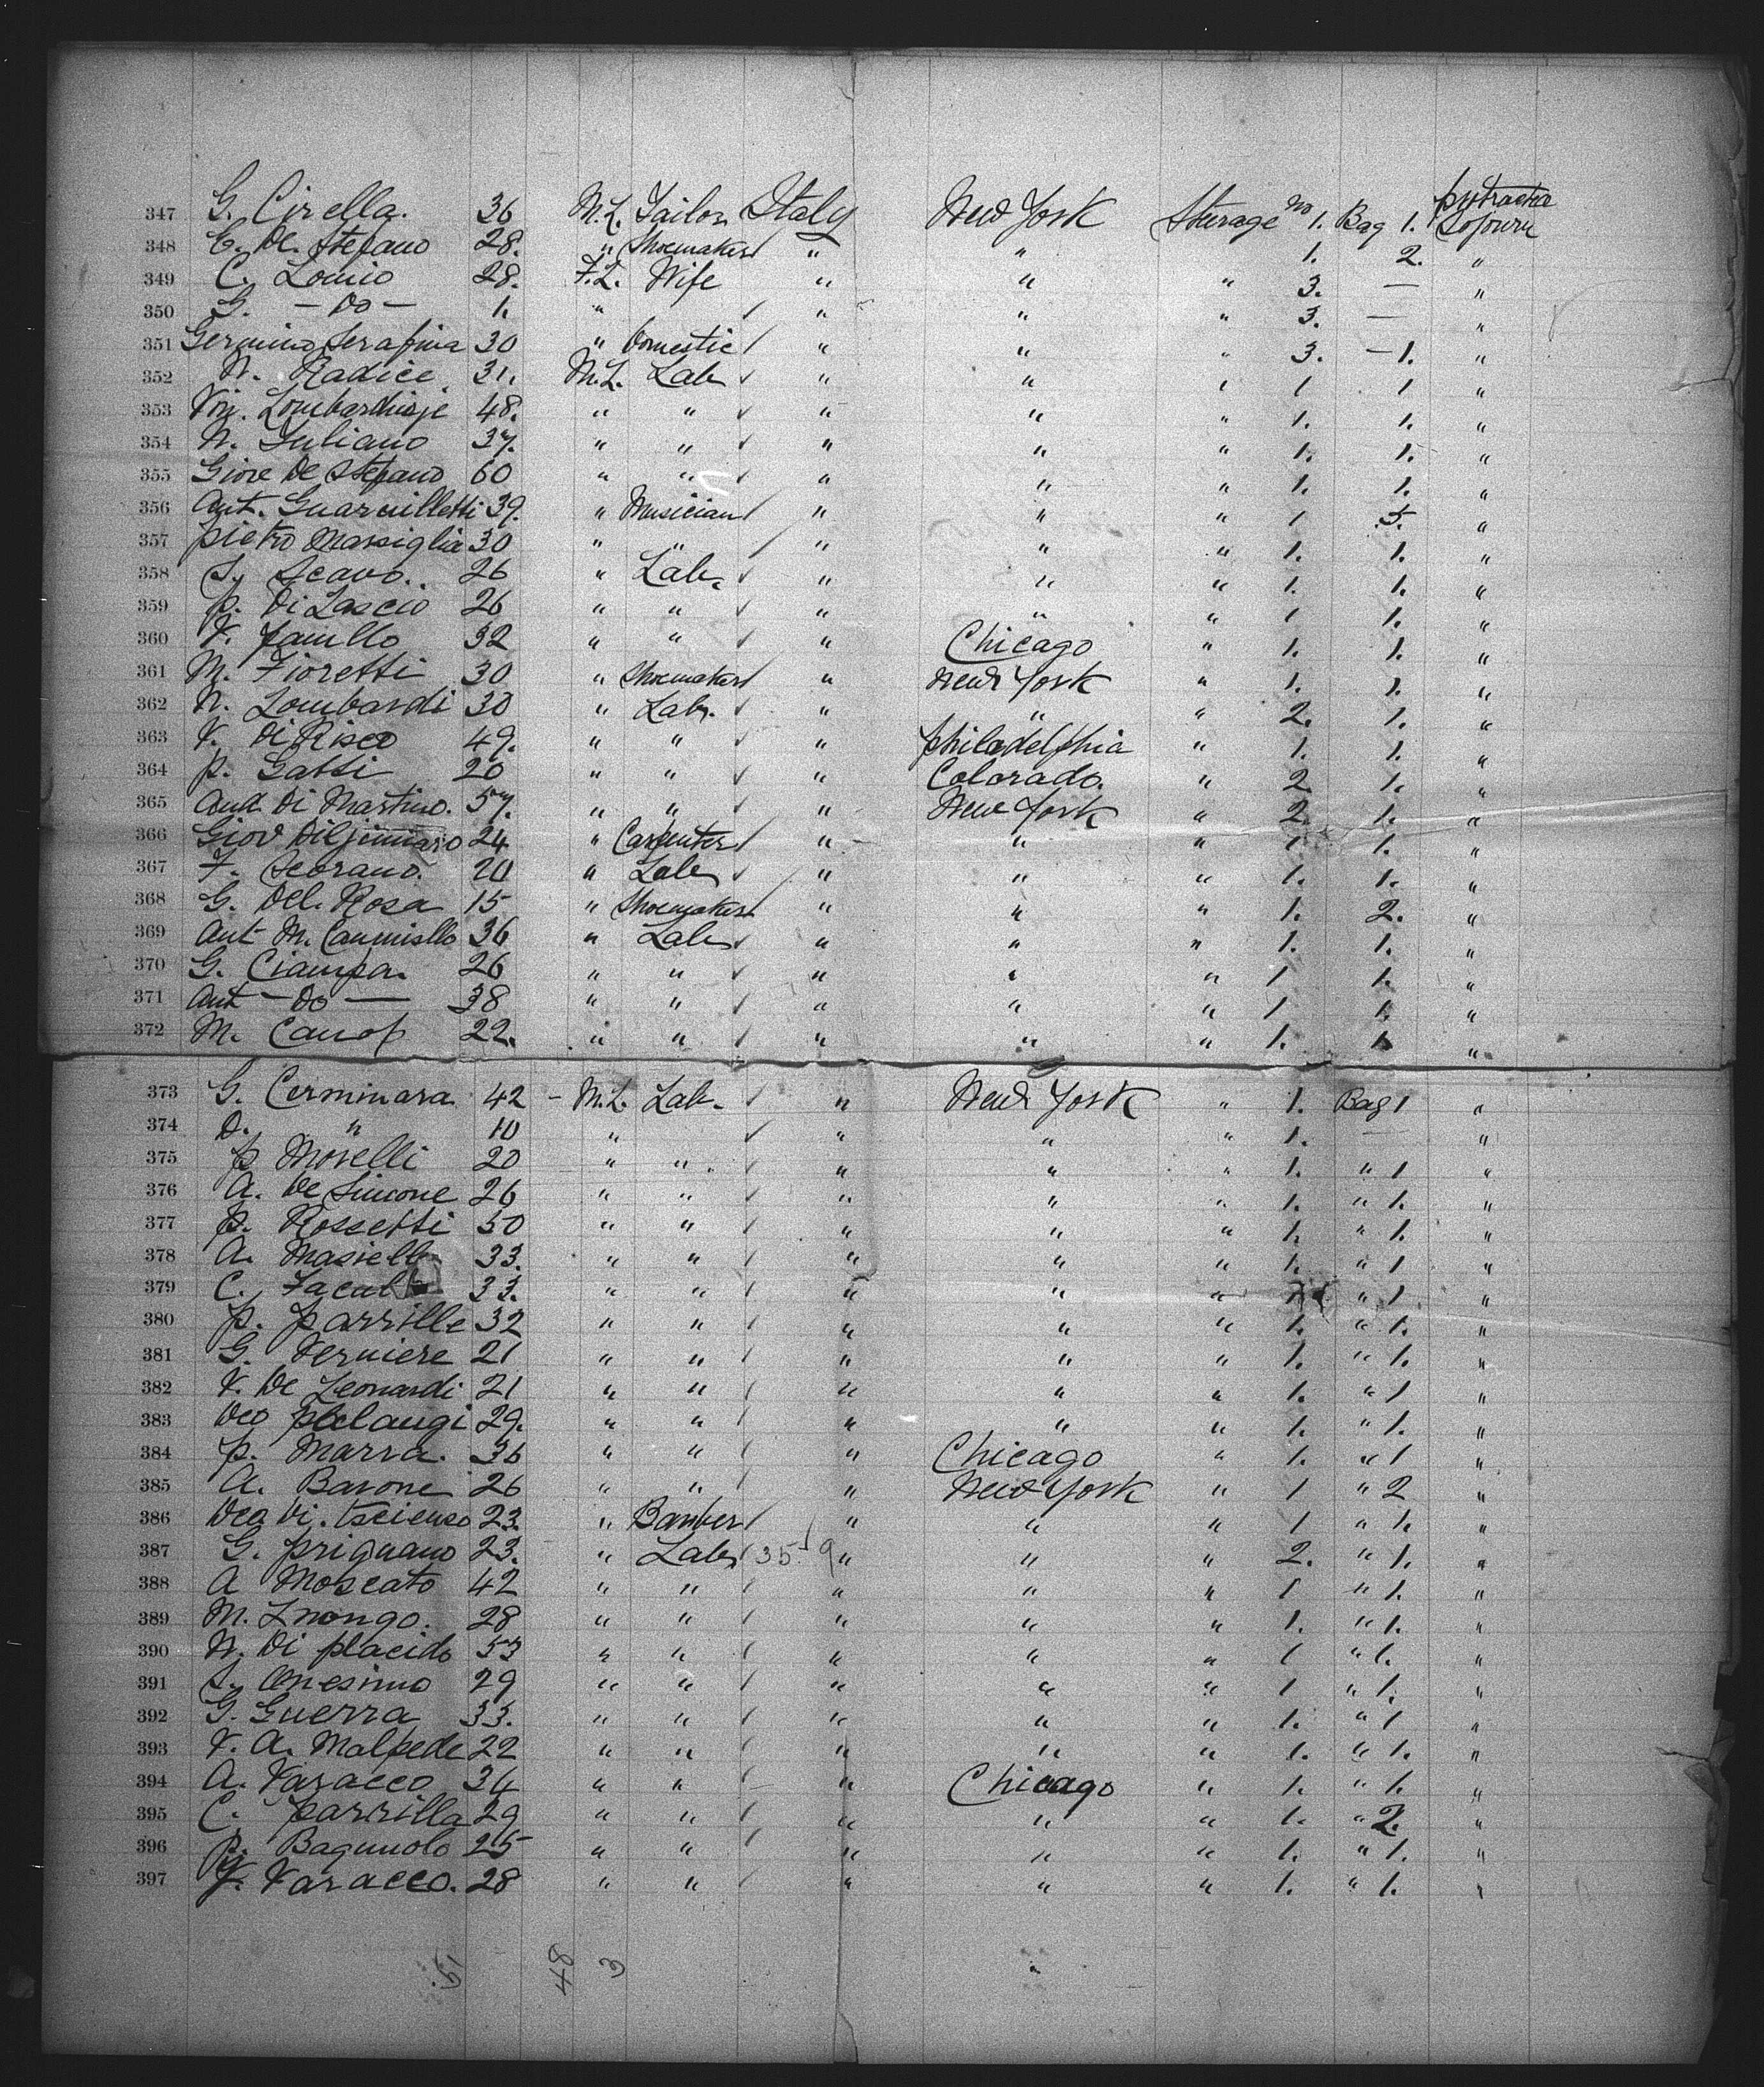 347 G. Cirella. 36 M.L. Tailor Italy New York Steerage No 1. Bag 1. protracted Sojourn
348 C. De Stefano 28. " Shoemaker " " 1. 2. "
349 C. Lonio 28. F.L. Wife " " " 3. — "
350 G. — Do — 1. " " " " 3. — "
351 Germino Serafina 30 " Domestic " " " 3. — 1. "
352 N. Radice 31. M.L. Lab " " " 1 1 "
353 Vin. 48. " " " " " 1. 1. "
354 N. Juliano 37. " " " " " 1. 1. "
355 Giov De Stefano 60 " " " " " 1. 1. "
356 Ant. Guarnilletti 39. " Musician " " " 1 5. "
357 Pietro Massiglia 30 " " " " " 1. 1. "
358 S. Scavo. 26 " Lab. " " " 1. 1. "
359 P. Di Lascio 26 " " " " " 1 1. "
360 V. 32 " " " Chicago " 1. 1. "
361 M. Fioretti 30 " Shoemaker " New York " 1. 1. "
362 N. Lombardi 30 " Labr. " " " 2. 1. "
363 V. Di Risco 49. " " " Philadelphia " 1. 1. "
364 P. Gatti 20 " " " Colorado. " 2 1. "
365 And. Di Martino. 57. " " " New York " 2. 1. "
366 Giov 24 " Carpenter " " " 1 1. "
367 F. Scorano. 20 " Lab " " " 1. 1. "
368 G. Del. Rosa 15 " Shoemaker " " " 1. 2. "
369 Ant M. 36 " Lab " " " 1. 1. "
370 G. Ciampa. 26 " " " " " 1 1. "
371 Ant — Do — 38 " " " " " 1 1. "
372 M. 22. " " " " " 1. 1. "
373 G. Cerminara 42 - M.L. Lab. " New York " 1. Bag 1 "
374 D. " 10 " " " " 1. — "
375 P Morelli 20 " " " " " 1. " 1 "
376 A. De Simone 26 " " " " " 1. " 1. "
377 P. Rossetti 50 " " " " " 1. " 1. "
378 A. Masiello 33. " " " " " 1. " 1 "
379 C. 33. " " " " " " 1 "
380 P. Parrille 32 " " " " " 1. " 1. "
381 G. Verniere 21 " " " " " 1. " 1. "
382 V. De Leonardi 21 " " " " " 1. " 1 "
383 29. " " " " " 1. " 1. "
384 P. Marra. 36 " " " Chicago " 1. " 1 "
385 A. Barone 26 " " " New York " 1 " 2 "
386 23. " " " " 1 " 1. "
387 G. Prignano 23. " Lab 35. 9 " " " 2. " 1. "
388 A Moscato 42 " " " " " 1 " 1. "
389 M. 28 " " " " " 1. " 1. "
390 N. Di Placido 53 " " " " " 1 " 1. "
391 S. Onesimo 29 " " " " " 1 " 1. "
392 G. Guerra 33. " " " " " 1. " 1 "
393 V. A. Malpede 22 " " " " " 1. " 1. "
394 A. Varacco 34 " " " Chicago " 1. " 1. "
395 C. Parrilla 29 " " " " " 1. " 2. "
396 P. Bagnuolo 25 " " " " " 1. " 1. "
397 Varacco. 28 " " " " " 1. " 1. "
19. 48 3